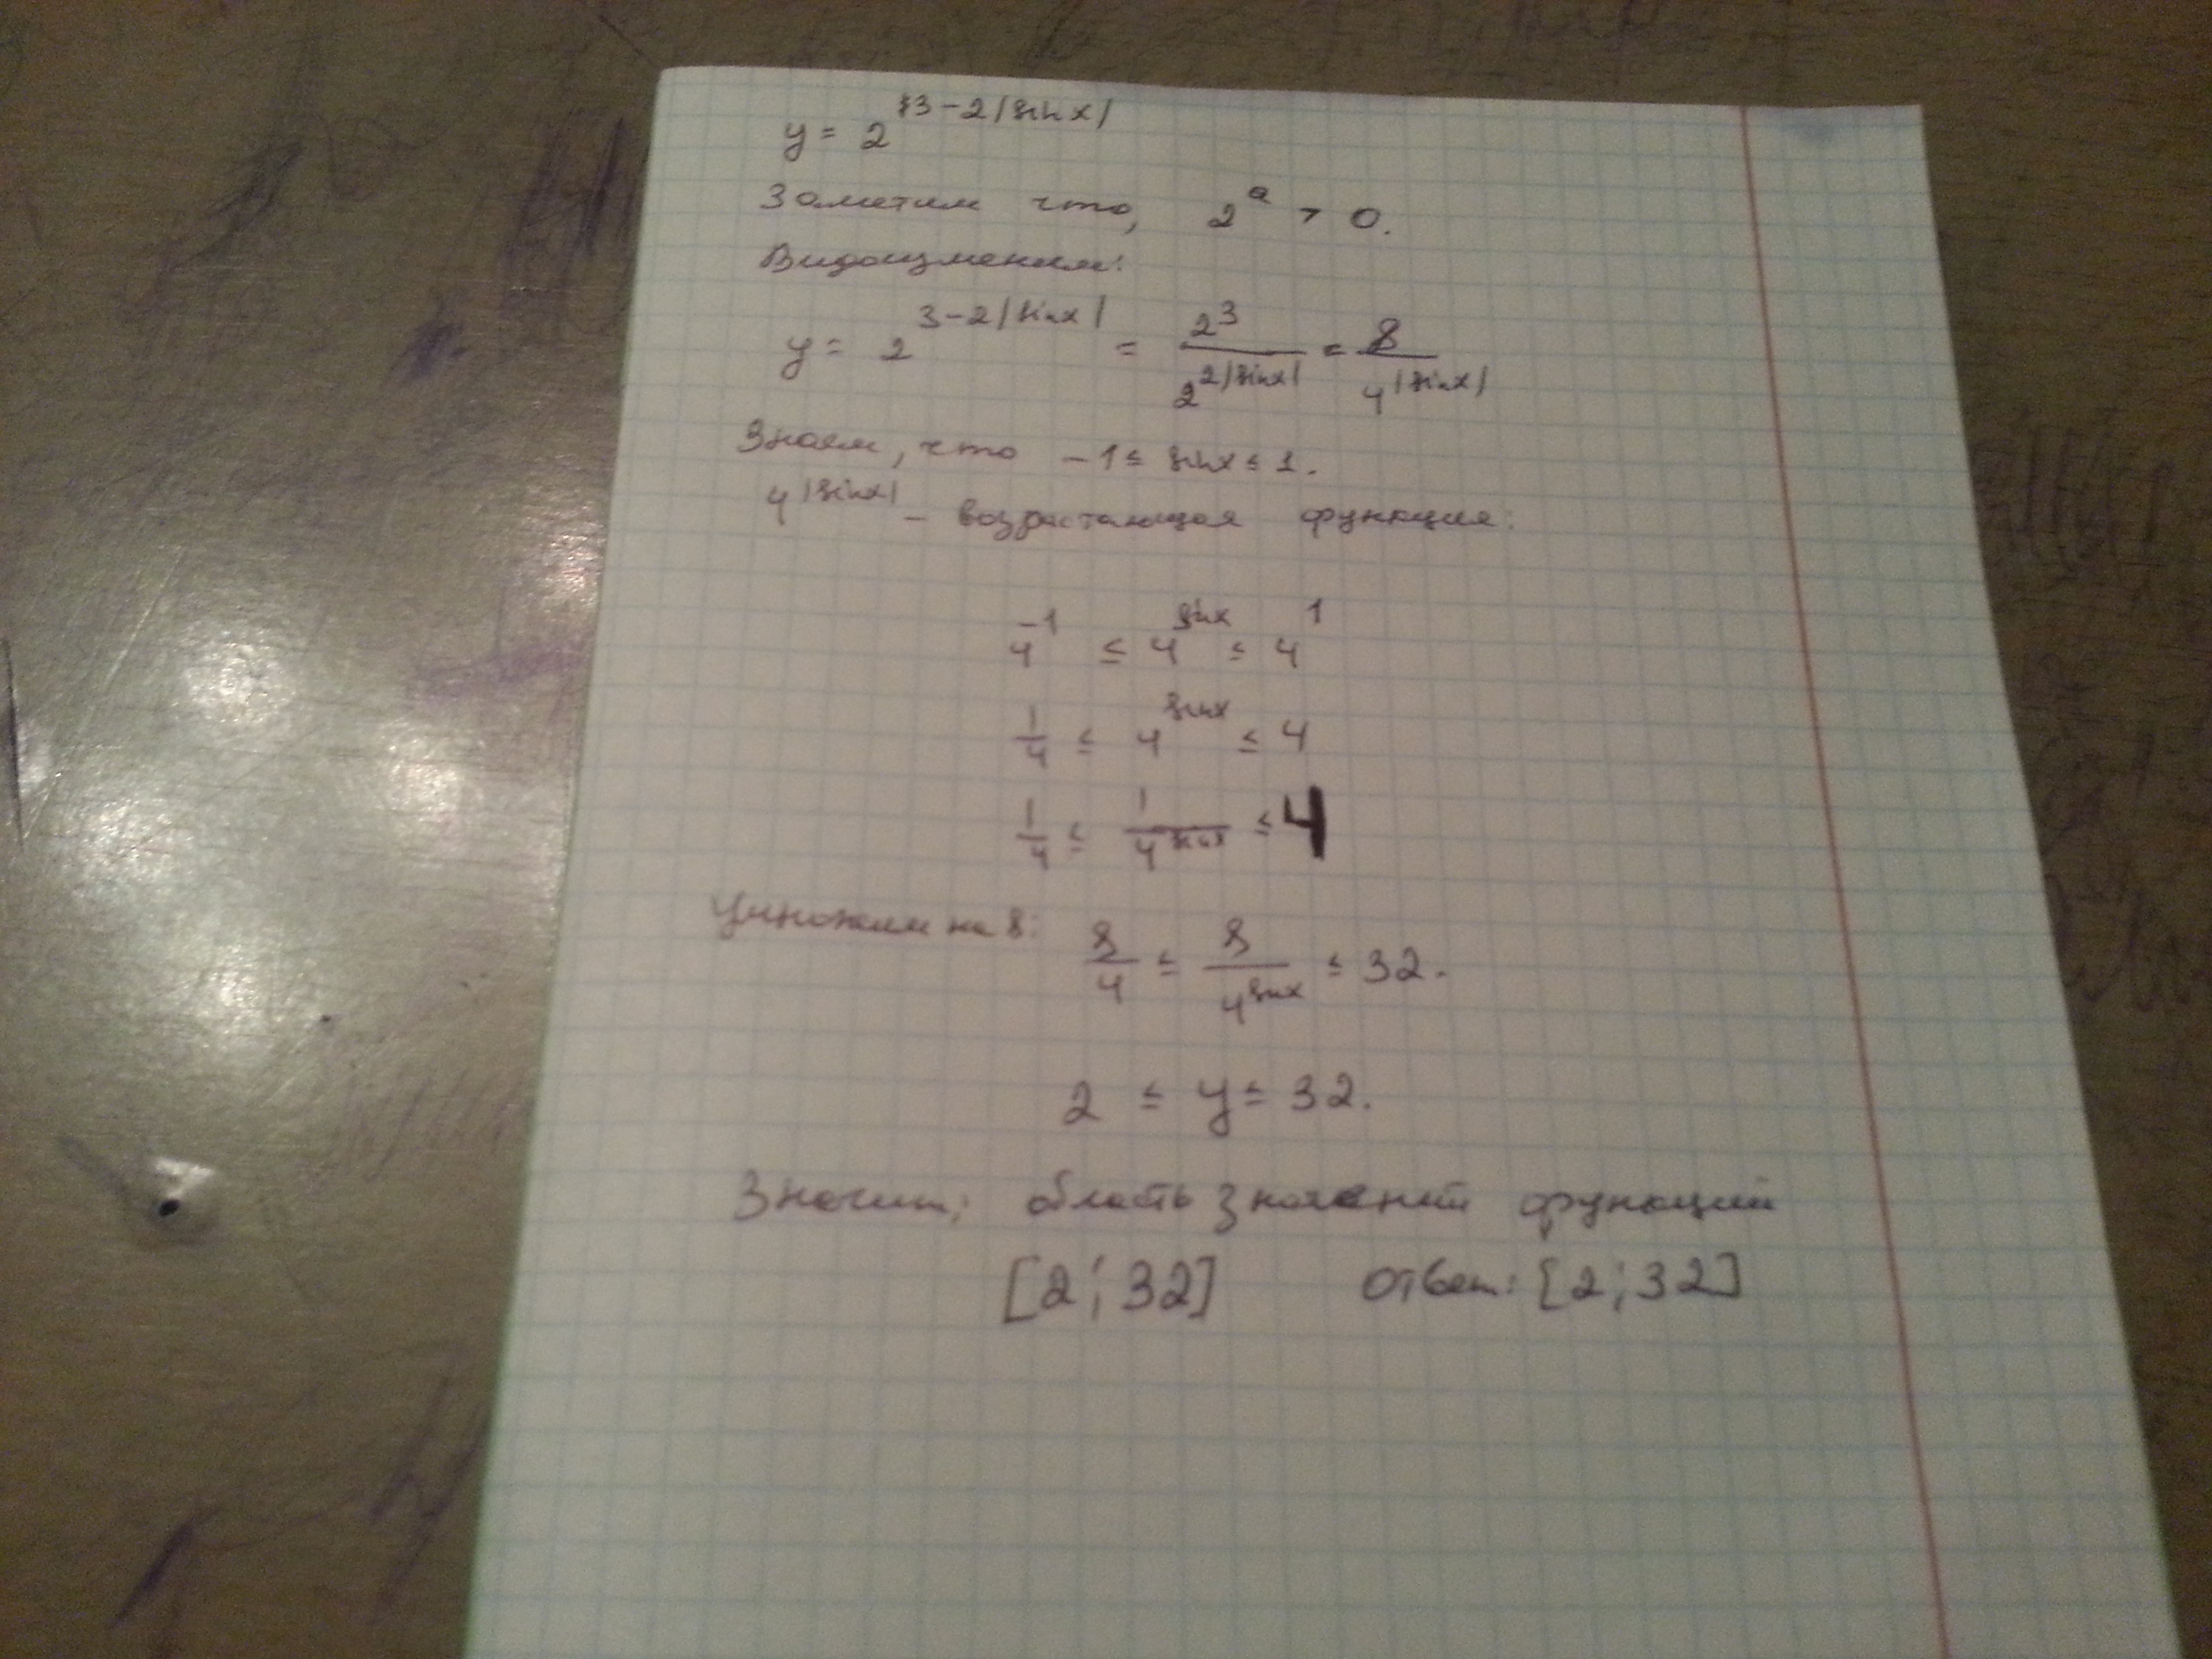 y = 2^(3-2|sin x|)
Заметим что, 2^a > 0.
Видоизменим:
y = 2^(3-2|sin x|) = 2^3/2^(2|sin x|) = 8/4^|sin x|
Знаем, что -1 ≤ sin x ≤ 1.
4^|sin x| - возрастающая функция:
4^-1 ≤ 4^sin x ≤ 4^1
1/4 ≤ 4^sin x ≤ 4
1/4 ≤ 1/4^sin x ≤ 4
Умножим на 8: 8/4 ≤ 8/4^sin x ≤ 32.
2 ≤ y ≤ 32.
Значит; область значений функций
[2; 32] Ответ: [2; 32]